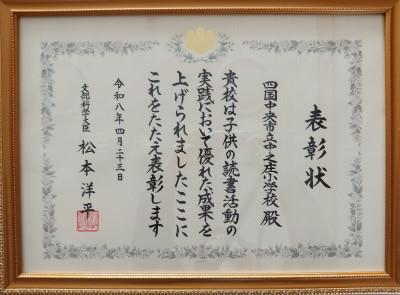 表彰状
四国中央市立中之庄小学校 殿
貴校は子供の読書活動の
実践において優れた成果を
上げられましたここに
これをたたえ表彰します
令和八年四月二十三日
文部科学大臣 松本洋平